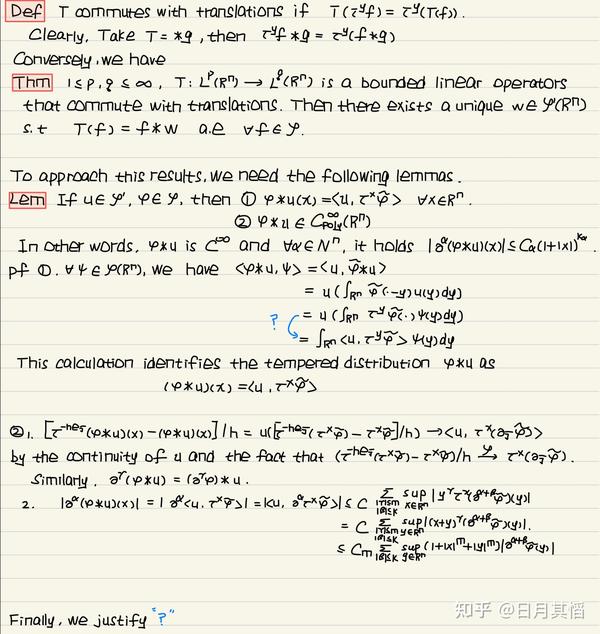 Def T commutes with translations if T(τ^y f) = τ^y(T(f)).
Clearly, Take T = *g, then τ^y f * g = τ^y(f * g)
Conversely, we have
Thm 1 ≤ p, q ≤ ∞, T: L^p(R^n) → L^q(R^n) is a bounded linear operators
that commute with translations. Then there exists a unique w ∈ 𝒮'(R^n)
s.t T(f) = f * w a.e ∀f ∈ 𝒮.
To approach this results, we need the following lemmas.
Lem If u ∈ 𝒮', φ ∈ 𝒮, then ① φ*u(x) = <u, τ^x φ̃> ∀x∈R^n.
② φ*u ∈ C^∞_poly(R^n)
In other words, φ*u is C^∞ and ∀α∈N^n, it holds |∂^α(φ*u)(x)| ≤ C_α(1+|x|)^{k_α}.
pf ①. ∀ψ∈𝒮(R^n), we have <φ*u, ψ> = <u, φ̃*u>
= u(∫_{R^n} φ̃(·-y)u(y)dy)
? = u(∫_{R^n} τ^y φ̃(·) ψ(y)dy)
= ∫_{R^n} <u, τ^y φ̃> ψ(y)dy
This calculation identifies the tempered distribution φ*u as
(φ*u)(x) = <u, τ^x φ̃>
② 1. [τ^{-he_j}(φ*u)(x) - (φ*u)(x)]/h = u([τ^{-he_j}(τ^x φ̃) - τ^x φ̃]/h) → <u, τ^x(∂_j φ̃)>
by the continuity of u and the fact that (τ^{-he_j}(τ^x φ̃) - τ^x φ̃)/h →^𝒮 τ^x(∂_j φ̃).
Similarly, ∂^γ(φ*u) = (∂^γ φ)*u.
2. |∂^α(φ*u)(x)| = |∂^α<u, τ^x φ̃>| = |<u, ∂^α τ^x φ̃>| ≤ C Σ_{|γ|≤m |β|≤k} sup_{x∈R^n} |y^γ τ^x(∂^{α+β} φ̃)(y)|
= C Σ_{|γ|≤m |β|≤k} sup_{y∈R^n} |(x+y)^γ (∂^{α+β} φ̃)(y)|.
≤ C_m Σ_{|β|≤k} sup_{y∈R^n} (1+|x|^m+|y|^m)|∂^{α+β} φ̃(y)|
Finally, we justify "?"
知乎 @日月其慆